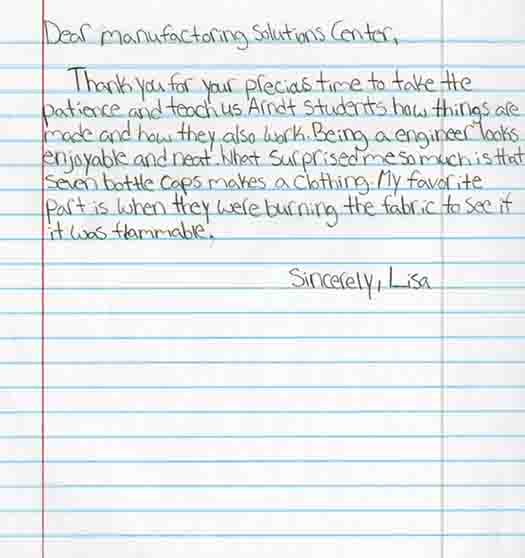 Dear manufactoring Solutions Center,
Thank you for your precias time to take the
patience and teach us Arndt Students how things are
made and how they also work. Being a engineer looks
enjoyable and neat. What surprised me so much is that
seven bottle caps makes a clothing. My favorite
part is when they were burning the fabric to see if
it was flammable.
Sincerely, Lisa